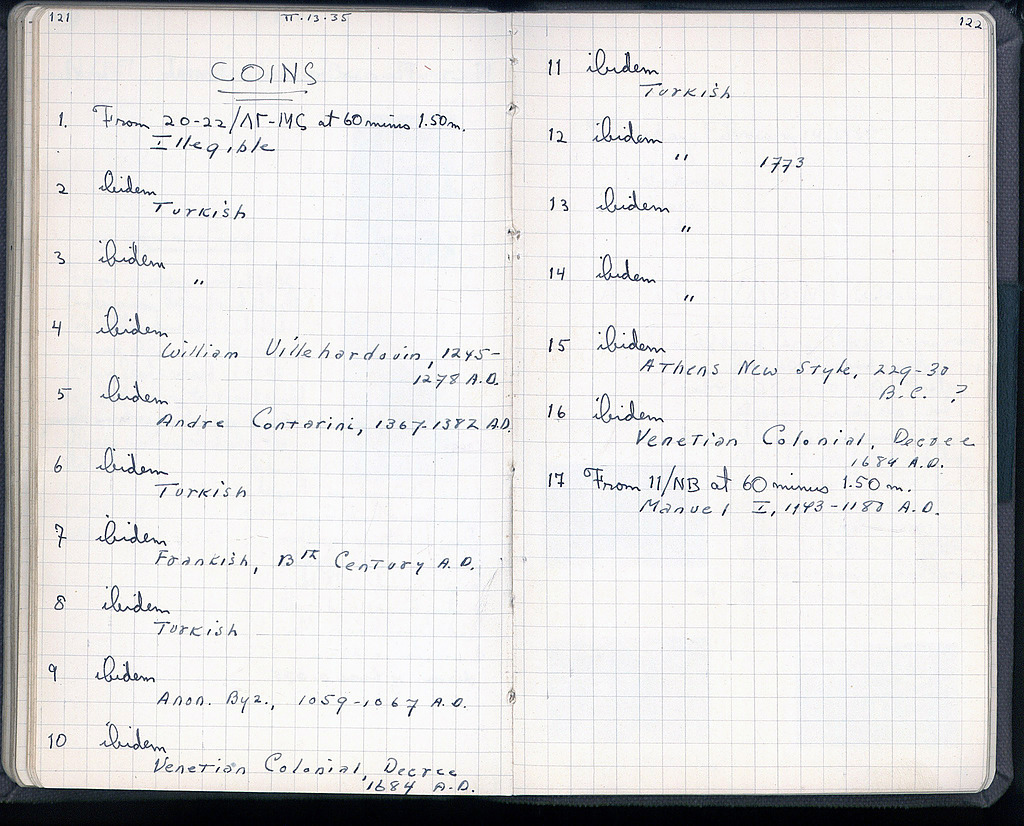 121
II-13-35
COINS
1. From 20-22/ΛΓ-ΜS at 60 minus 1.50 m.
Illegible
2 ibidem
Turkish
3 ibidem
"
4 ibidem
William Villehardouin, 1245-
1278 A.D.
5 ibidem
Andre Contarini, 1367-1382 A.D.
6 ibidem
Turkish
7 ibidem
Frankish, 13th Century A.D.
8 ibidem
Turkish
9 ibidem
Anon. Byz., 1059-1067 A.D.
10 ibidem
Venetian Colonial, Decree
1684 A.D.
122
11 ibidem
Turkish
12 ibidem
" 1773
13 ibidem
"
14 ibidem
"
15 ibidem
Athens New Style, 229-30
B.C. ?
16 ibidem
Venetian Colonial, Decree
1684 A.D.
17 From 11/NB at 60 minus 1.50 m.
Manuel I, 1143-1180 A.D.